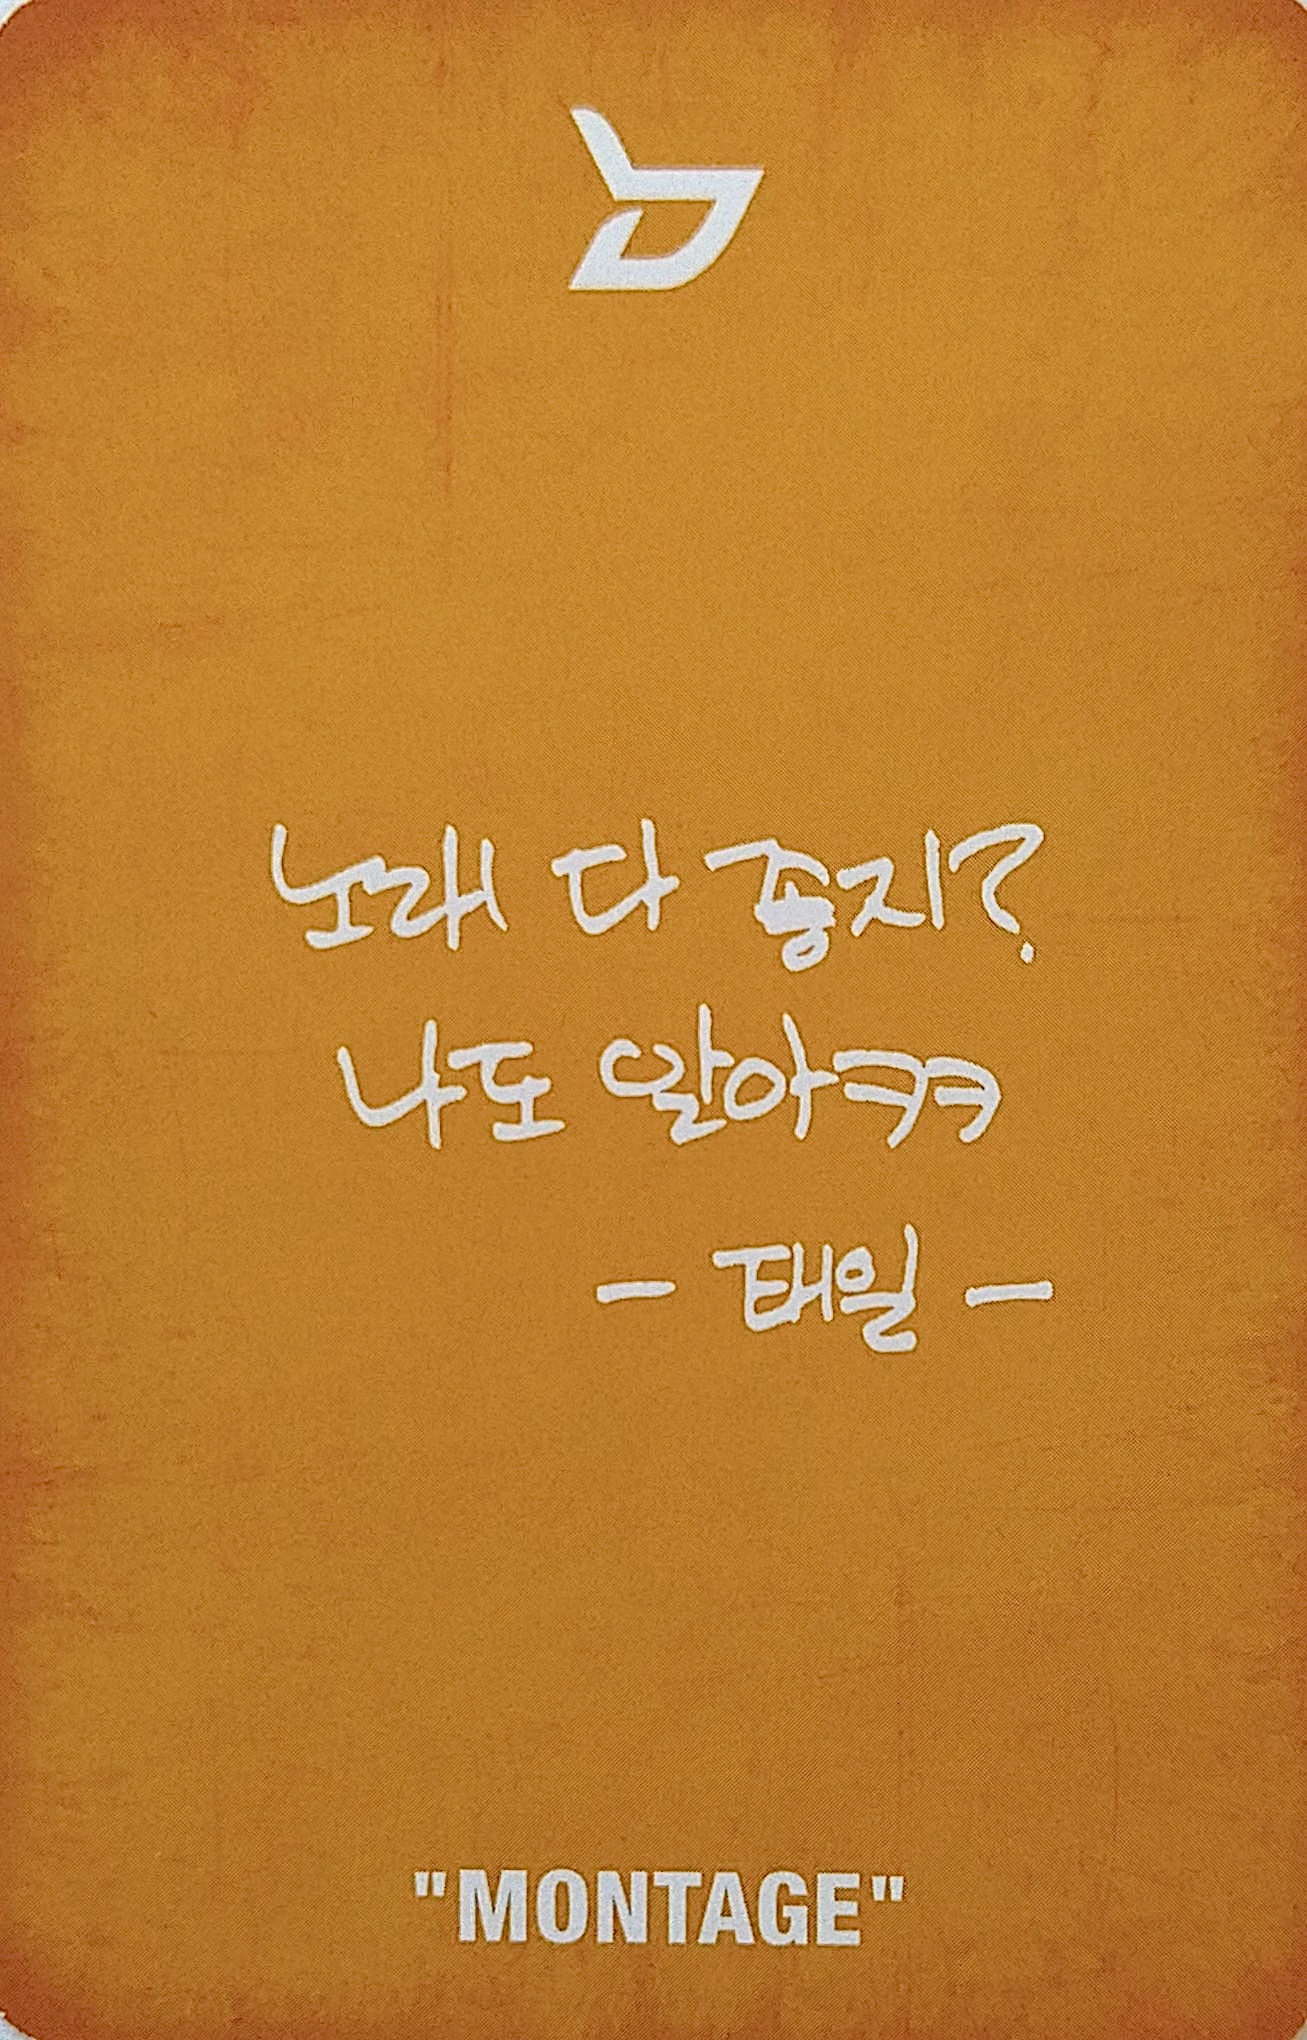 노래 다 좋지?
나도 알아ㅋㅋ
- 태일 -
"MONTAGE"